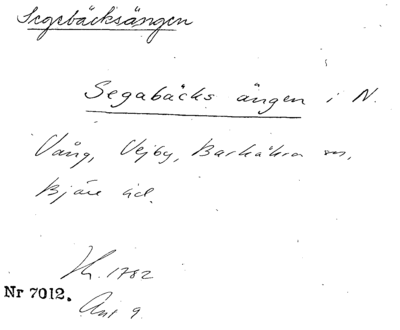 Segebäcksängen
Segabäcks ängen i N.
Vång, Vejby, Barkåkra sn,
Bjäre hd.
Hr. 1782
Nr 7012.
Ant 9.